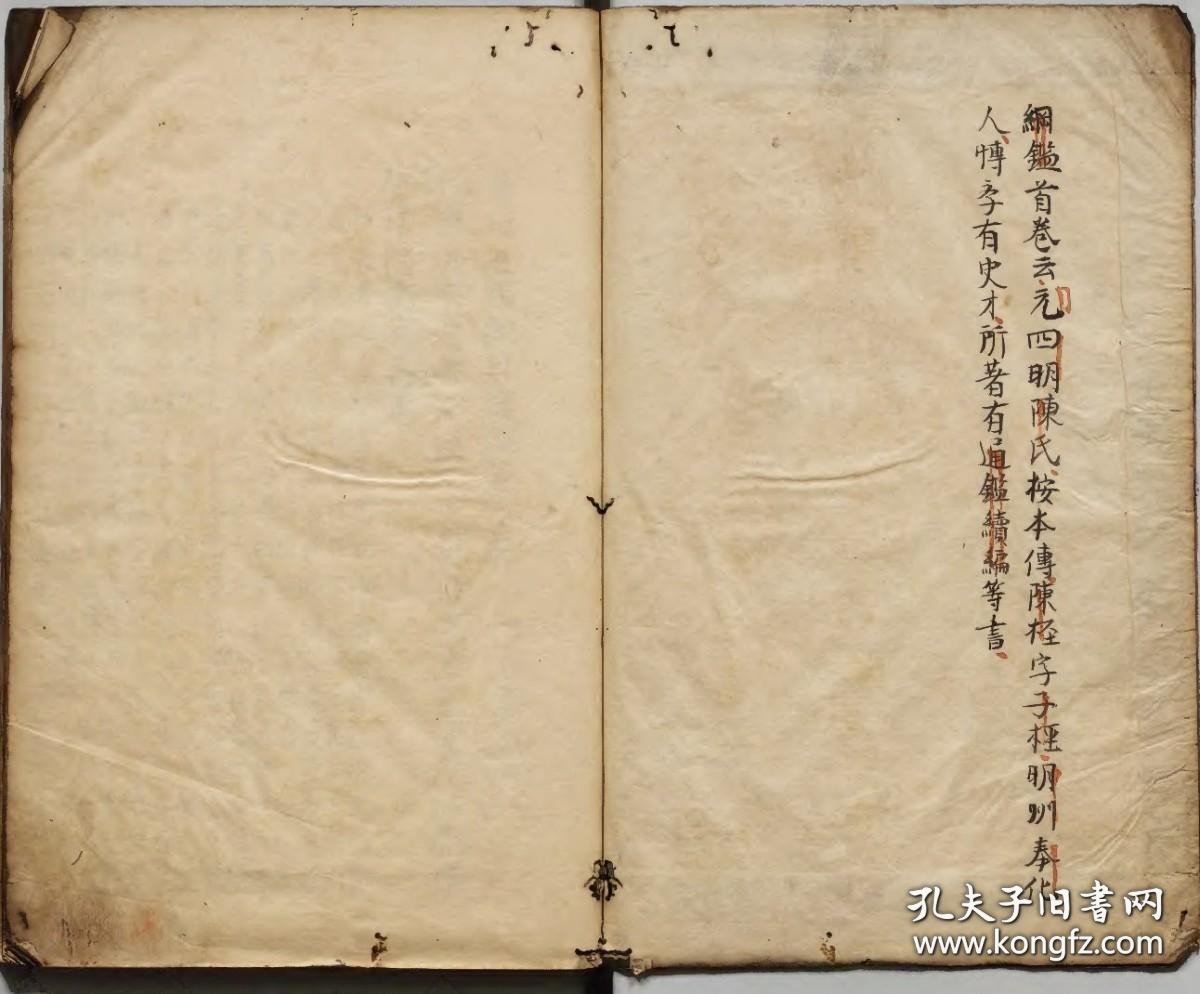 綱鑑首卷云元四明陳氏按本傳陳桱字子桱明州奉化
人博学有史才所著有通鑑續編等書
孔夫子旧书网
www.kongfz.com